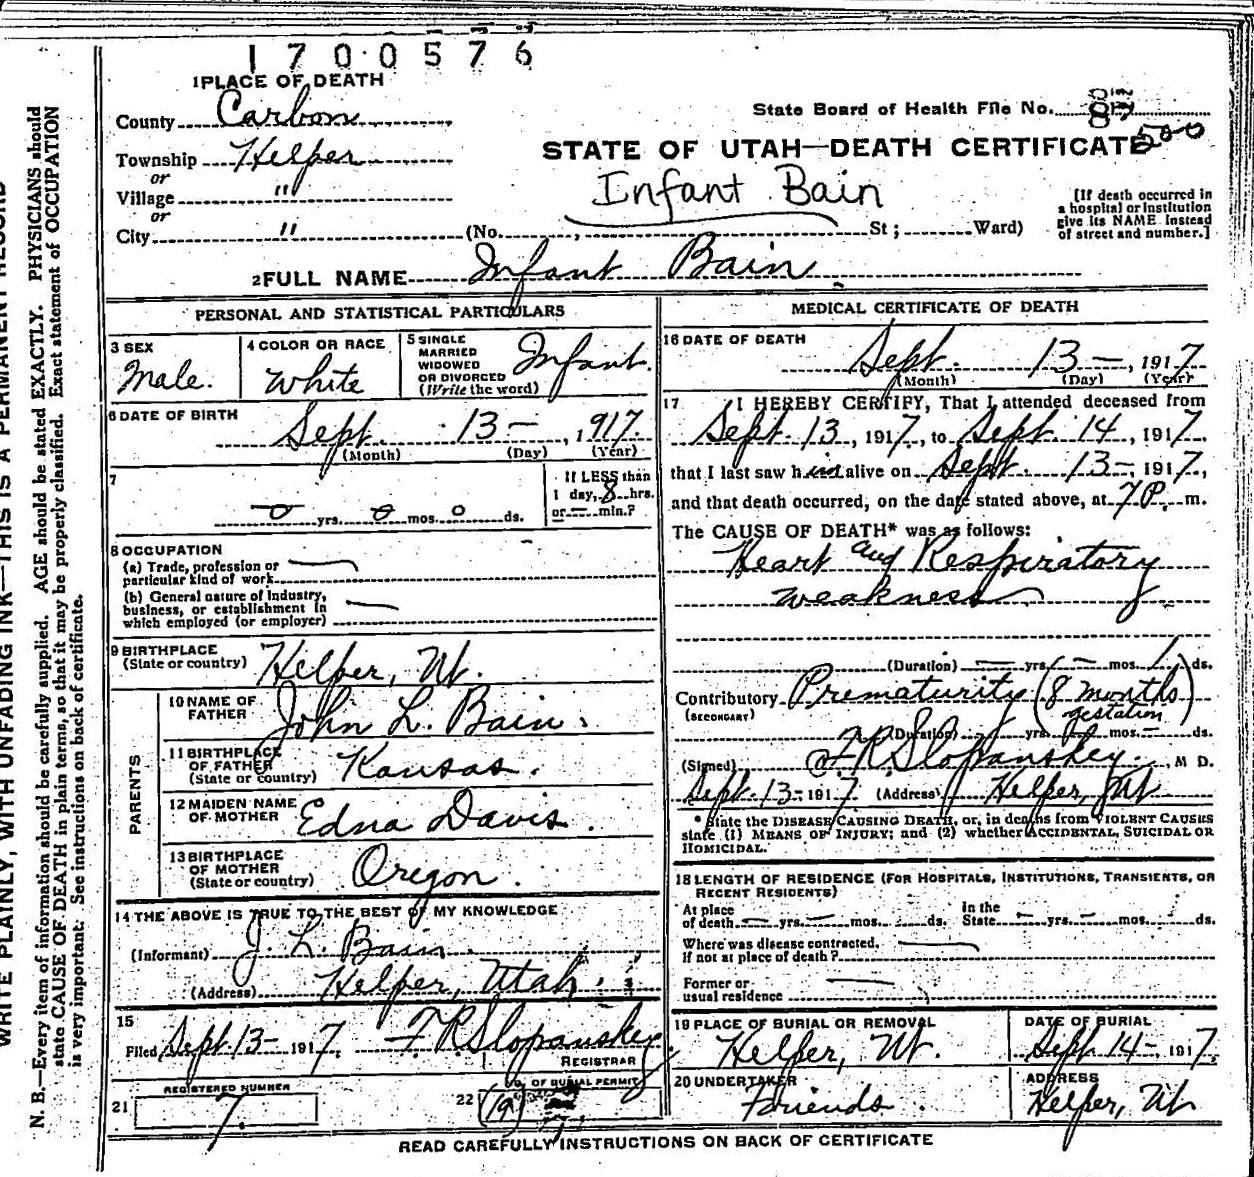 1700576
1 PLACE OF DEATH
County Carbon
State Board of Health File No.
500
Township Helper
STATE OF UTAH—DEATH CERTIFICATE
or
Village "
Infant Bain
or
City " (No. , St; Ward)
[If death occurred in
a hospital or institution
give its NAME instead
of street and number.]
2 FULL NAME Infant Bain
PERSONAL AND STATISTICAL PARTICULARS
3 SEX
Male.
4 COLOR OR RACE
White
5 SINGLE
MARRIED
WIDOWED
OR DIVORCED
(Write the word)
Infant.
6 DATE OF BIRTH
Sept. 13 — , 1917.
(Month) (Day) (Year)
7
0 yrs. 0 mos. 0 ds.
If LESS than
1 day, 8 hrs.
or — min.?
8 OCCUPATION
(a) Trade, profession or
particular kind of work
(b) General nature of Industry,
business, or establishment in
which employed (or employer)
9 BIRTHPLACE
(State or country) Helper, Ut.
PARENTS
10 NAME OF
FATHER John L. Bain.
11 BIRTHPLACE
OF FATHER
(State or country) Kansas.
12 MAIDEN NAME
OF MOTHER Edna Davis.
13 BIRTHPLACE
OF MOTHER
(State or country) Oregon.
14 THE ABOVE IS TRUE TO THE BEST OF MY KNOWLEDGE
(Informant) J. L. Bain
(Address) Helper, Utah
15
Filed Sept. 13- 1917, F R Slopanskey
REGISTRAR
REGISTERED NUMBER
21 7.
NO. OF BURIAL PERMIT
22 (19)
MEDICAL CERTIFICATE OF DEATH
16 DATE OF DEATH
Sept. 13 —, 1917
(Month) (Day) (Year)
17 I HEREBY CERTIFY, That I attended deceased from
Sept. 13, 1917, to Sept. 14, 1917,
that I last saw him alive on Sept. 13-, 1917,
and that death occurred, on the date stated above, at 7 P. m.
The CAUSE OF DEATH* was as follows:
Heart and Respiratory
weakness
(Duration) — yrs. — mos. 1 ds.
Contributory Prematurity (8 months
(SECONDARY) gestation)
(Duration) — yrs. mos. — ds.
(Signed) F R Slopanskey. M D.
Sept. 13- 1917 (Address) Helper, Ut
* State the DISEASE CAUSING DEATH, or, in deaths from VIOLENT CAUSES
state (1) MEANS OF INJURY; and (2) whether ACCIDENTAL, SUICIDAL OR
HOMICIDAL.
18 LENGTH OF RESIDENCE (FOR HOSPITALS, INSTITUTIONS, TRANSIENTS, OR
RECENT RESIDENTS)
At place
of death — yrs. — mos. ds.
In the
State — yrs. — mos. ds.
Where was disease contracted,
if not at place of death?
Former or
usual residence
19 PLACE OF BURIAL OR REMOVAL
Helper, Ut.
DATE OF BURIAL
Sept 14-, 1917,
20 UNDERTAKER
Friends
ADDRESS
Helper, Ut
READ CAREFULLY INSTRUCTIONS ON BACK OF CERTIFICATE
WRITE PLAINLY, WITH UNFADING INK—THIS IS A PERMANENT RECORD
N. B.—Every item of information should be carefully supplied. AGE should be stated EXACTLY. PHYSICIANS should
state CAUSE OF DEATH in plain terms, so that it may be properly classified. Exact statement of OCCUPATION
is very important. See instructions on back of certificate.